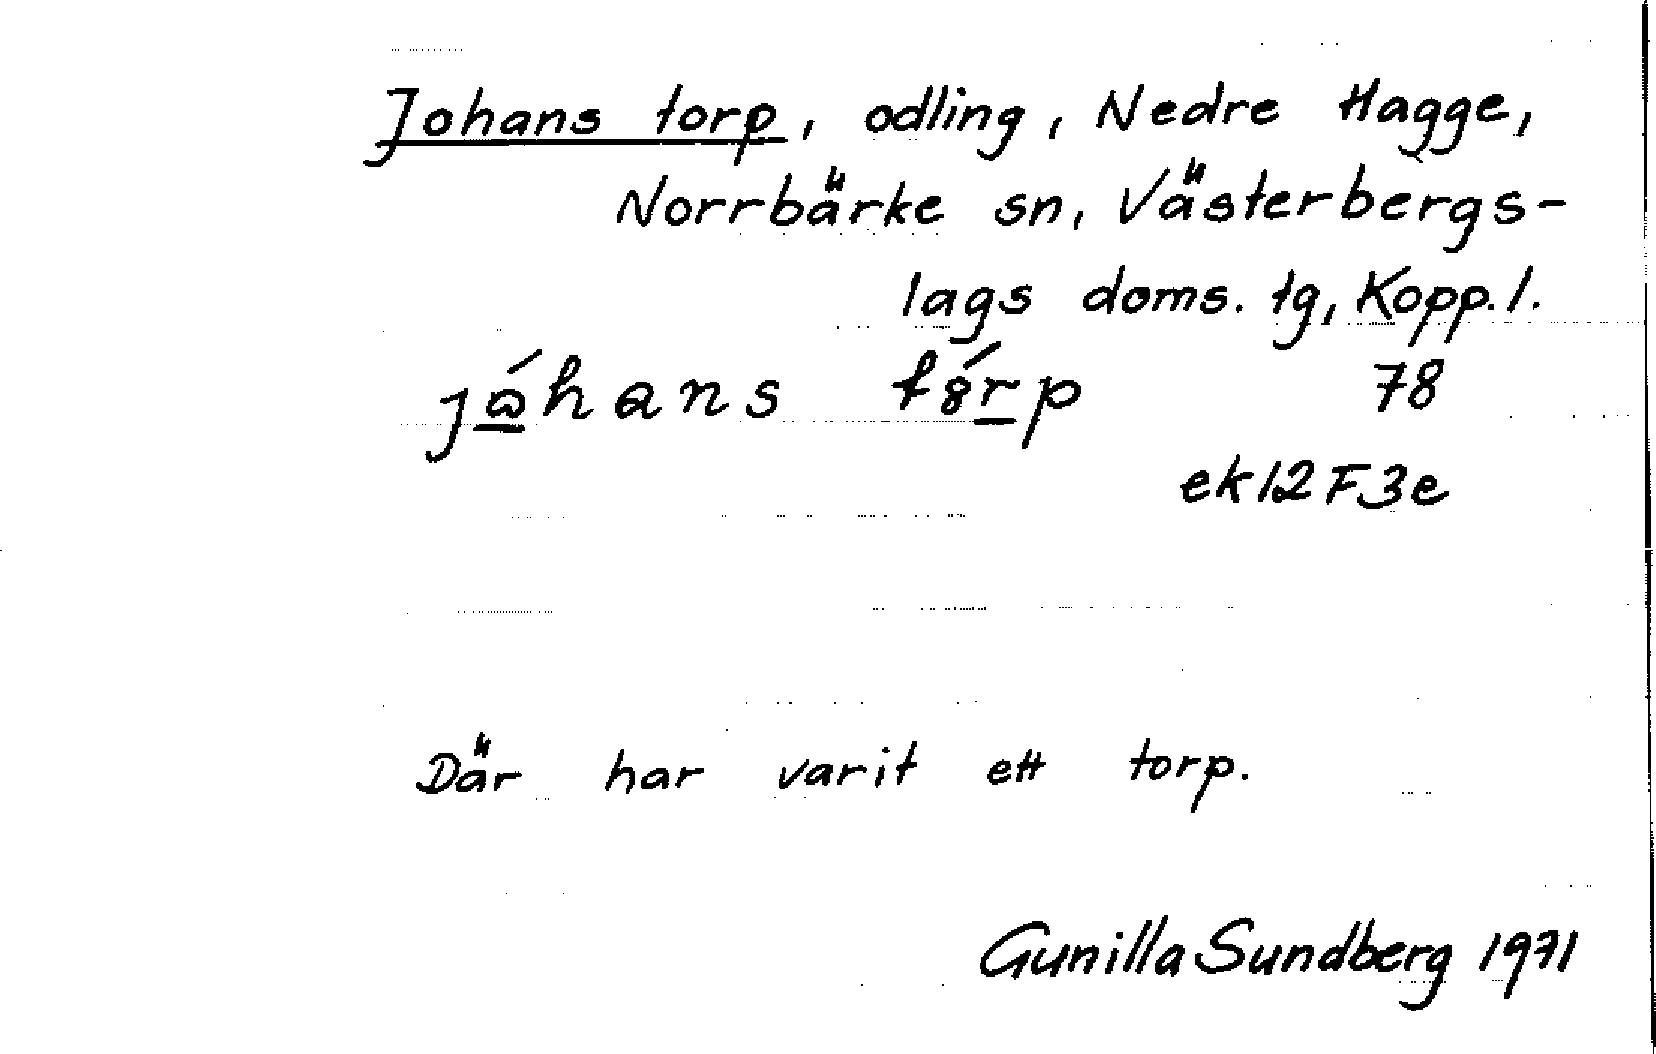 Johans torp, odling, Nedre Hagge,
Norrbärke sn, Västerbergs-
lags doms. tg, Kopp. l.
78
ek12F3e
Där har varit ett torp.
Gunilla Sundberg 1971